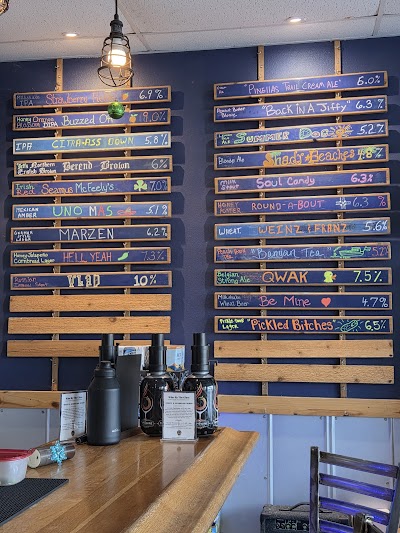 Strawberry
IPA
6.9%
Honey Orange
Blossom IPA
Buzzed
19.0%
IPA
CITRA-ASS DOWN
5.8%
Northern
English Brown
Berend-Brown
6%
Irish
Seamus McFeely's
7.0%
MEXICAN
AMBER
UNO MAS
5.1%
MARZEN
6.2%
Honey Jalapeño
Cornbread Lager
HELL YEAH
7.3%
Russian
Imperial Stout
VLAD
10%
PINELLAS TRAIL CREAM ALE
5.0%
Peanut Butter
"BACK IN A JIFFY"
6.3%
SUMMER DOG
5.2%
Blonde Ale
Shady Beaches
4.8%
Stout
SOUL CANDY
6.3%
HONEY
PORTER
ROUND-A-BOUT
6.3%
WHEAT
WEINZ FRANZ
5.6%
Tea
5.2%
Belgian
Strong Ale
QWAK
7.5%
Wheat Beer
Be Mine
4.7%
Pickle Sour
Lager
Pickled Bitches
6.5%